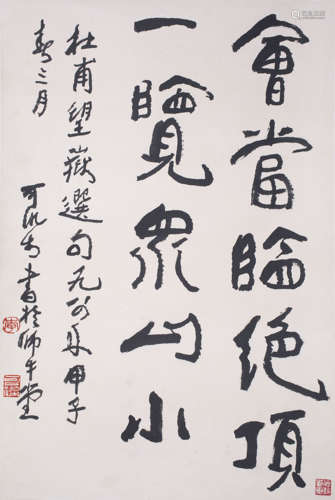 會當臨絕頂
一覽眾山小
杜甫望嶽選句一九八四年甲子
春三月
可染書於師牛堂